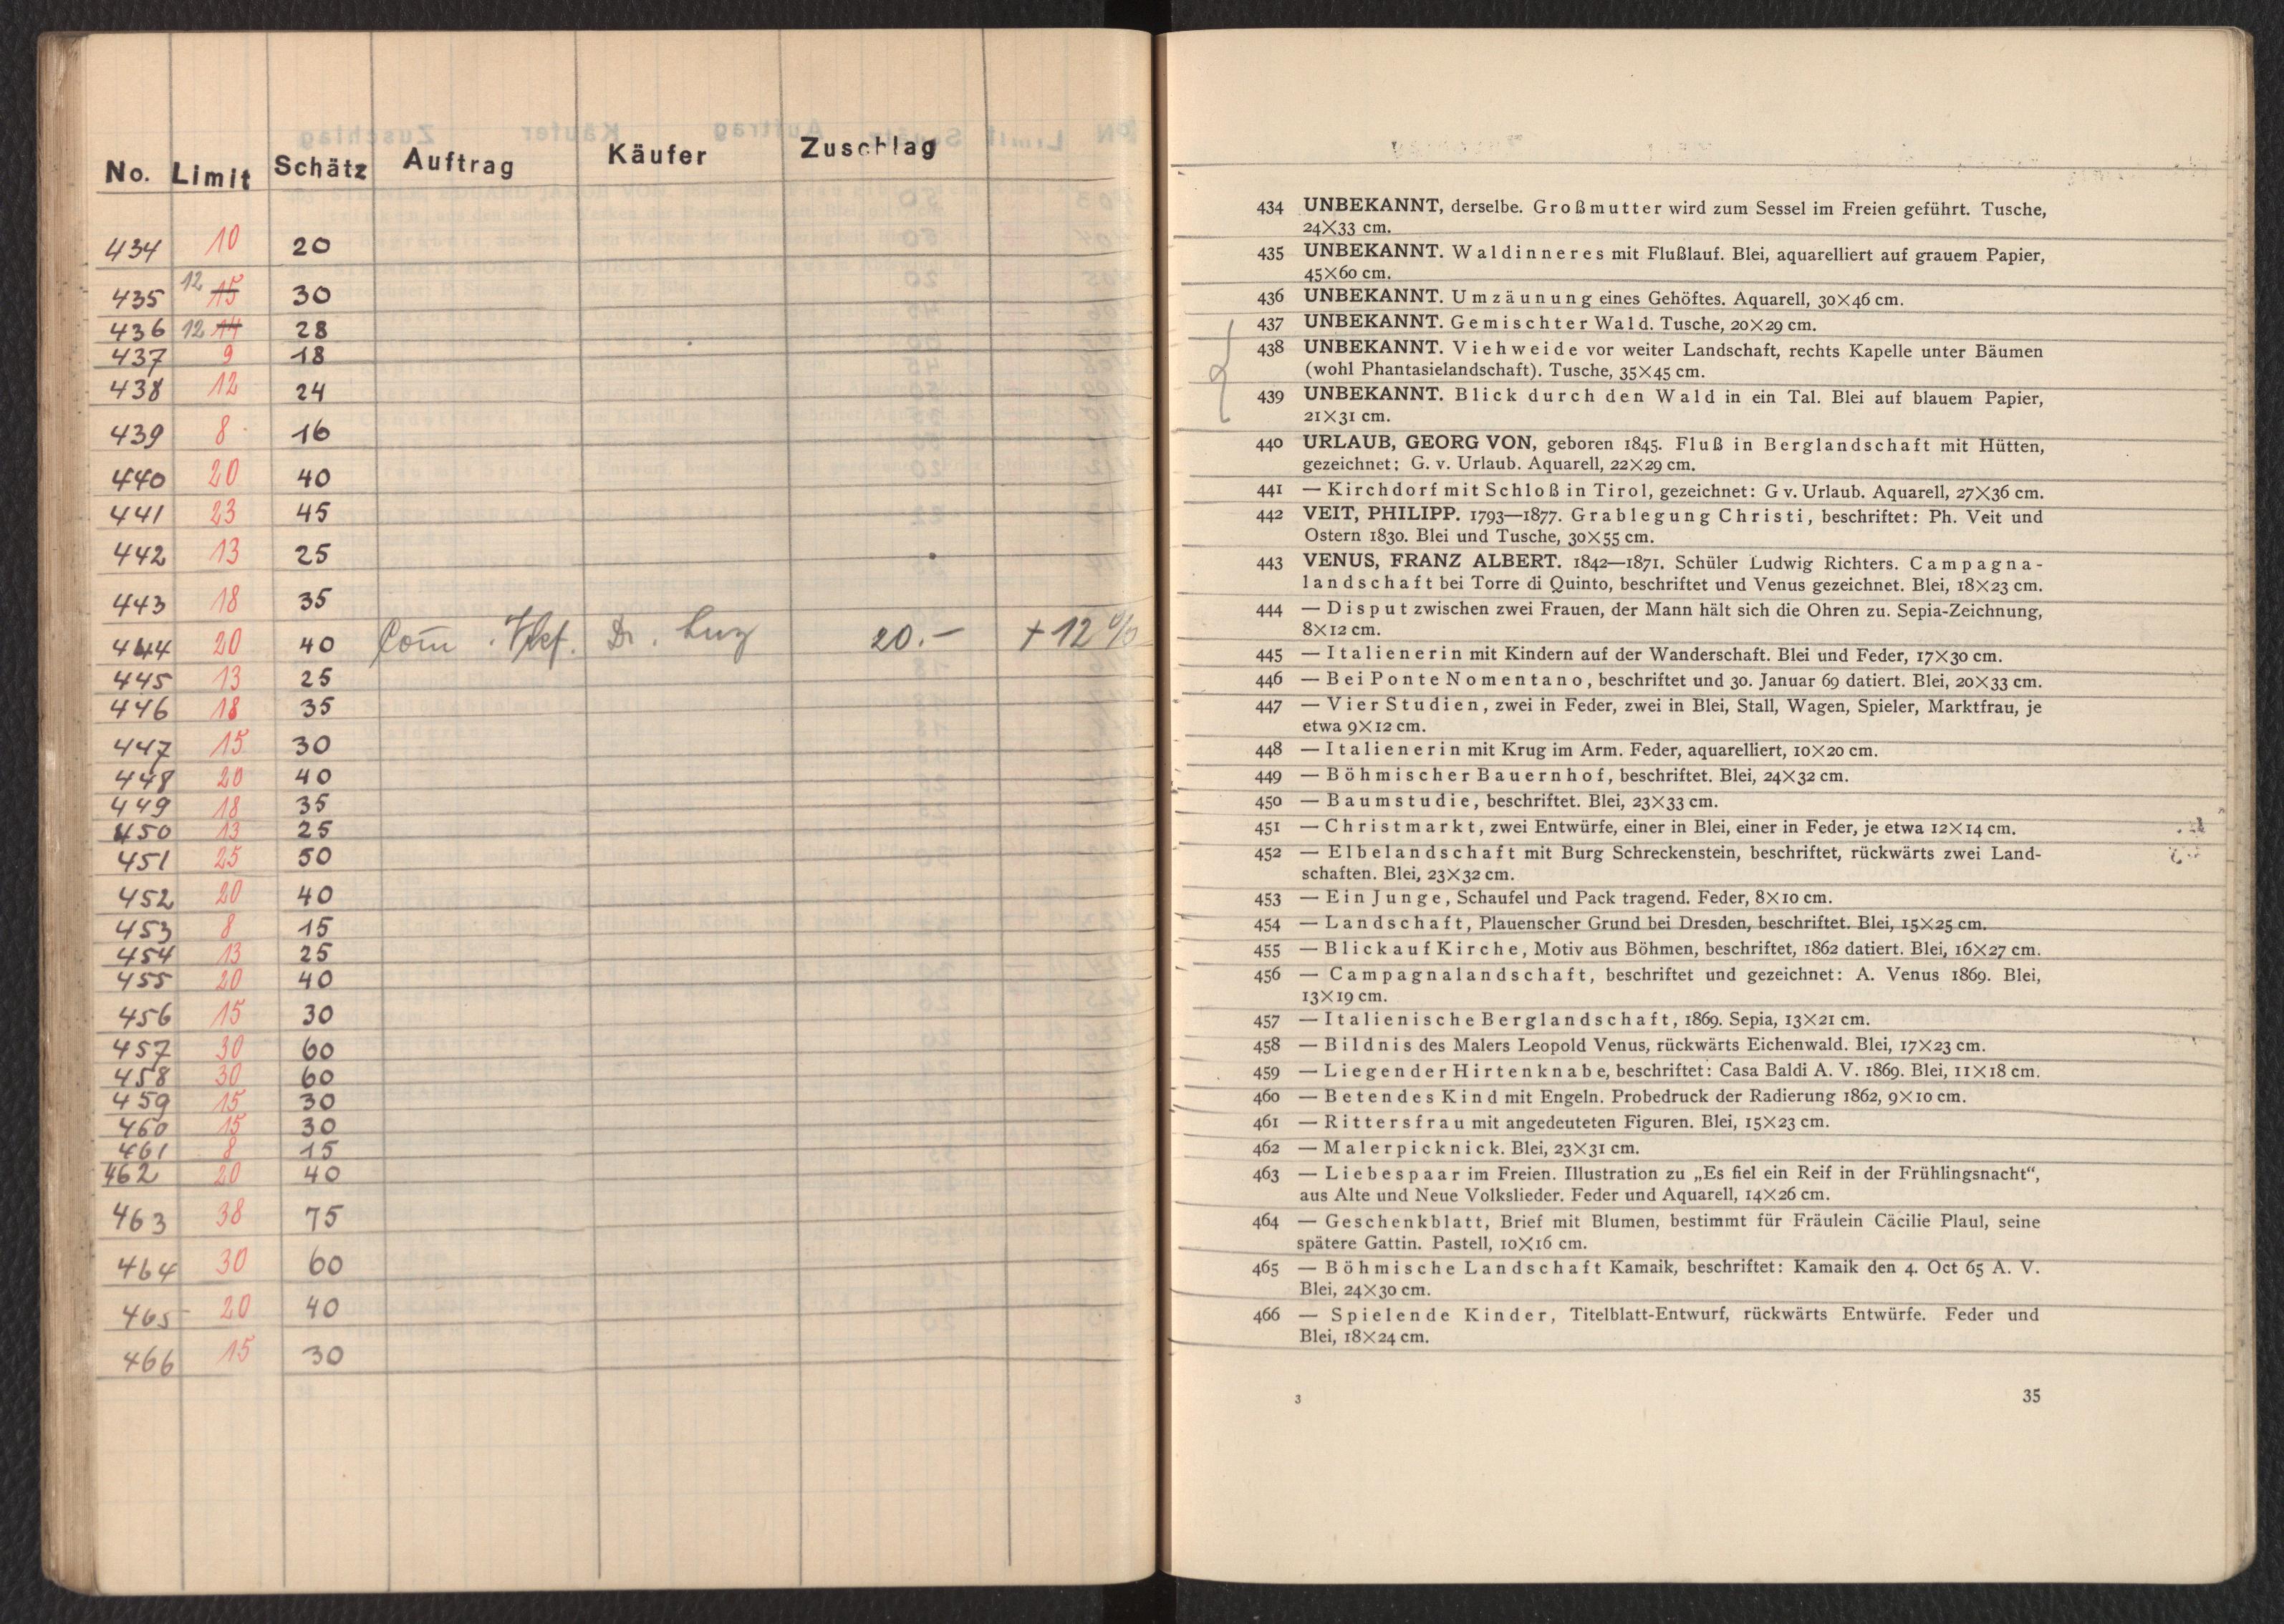 No. Limit Schätz Auftrag Käufer Zuschlag
434 10 20
435 12 15 30
436 12 14 28
437 9 18
438 12 24
439 8 16
440 20 40
441 23 45
442 13 25
443 18 35
444 20 40 Dr. 20.— + 12%
445 13 25
446 18 35
447 15 30
448 20 40
449 18 35
450 13 25
451 25 50
452 20 40
453 8 15
454 13 25
455 20 40
456 15 30
457 30 60
458 30 60
459 15 30
460 15 30
461 8 15
462 20 40
463 38 75
464 30 60
465 20 40
466 15 30
434 UNBEKANNT, derselbe. Großmutter wird zum Sessel im Freien geführt. Tusche,
24×33 cm.
435 UNBEKANNT. Waldinneres mit Flußlauf. Blei, aquarelliert auf grauem Papier,
45×60 cm.
436 UNBEKANNT. Umzäunung eines Gehöftes. Aquarell, 30×46 cm.
437 UNBEKANNT. Gemischter Wald. Tusche, 20×29 cm.
438 UNBEKANNT. Viehweide vor weiter Landschaft, rechts Kapelle unter Bäumen
(wohl Phantasielandschaft). Tusche, 35×45 cm.
439 UNBEKANNT. Blick durch den Wald in ein Tal. Blei auf blauem Papier,
21×31 cm.
440 URLAUB, GEORG VON, geboren 1845. Fluß in Berglandschaft mit Hütten,
gezeichnet: G. v. Urlaub. Aquarell, 22×29 cm.
441 — Kirchdorf mit Schloß in Tirol, gezeichnet: G v. Urlaub. Aquarell, 27×36 cm.
442 VEIT, PHILIPP. 1793—1877. Grablegung Christi, beschriftet: Ph. Veit und
Ostern 1830. Blei und Tusche, 30×55 cm.
443 VENUS, FRANZ ALBERT. 1842—1871. Schüler Ludwig Richters. Campagna-
landschaft bei Torre di Quinto, beschriftet und Venus gezeichnet. Blei, 18×23 cm.
444 — Disput zwischen zwei Frauen, der Mann hält sich die Ohren zu. Sepia-Zeichnung,
8×12 cm.
445 — Italienerin mit Kindern auf der Wanderschaft. Blei und Feder, 17×30 cm.
446 — Bei Ponte Nomentano, beschriftet und 30. Januar 69 datiert. Blei, 20×33 cm.
447 — Vier Studien, zwei in Feder, zwei in Blei, Stall, Wagen, Spieler, Marktfrau, je
etwa 9×12 cm.
448 — Italienerin mit Krug im Arm. Feder, aquarelliert, 10×20 cm.
449 — Böhmischer Bauernhof, beschriftet. Blei, 24×32 cm.
450 — Baumstudie, beschriftet. Blei, 23×33 cm.
451 — Christmarkt, zwei Entwürfe, einer in Blei, einer in Feder, je etwa 12×14 cm.
452 — Elbelandschaft mit Burg Schreckenstein, beschriftet, rückwärts zwei Land-
schaften. Blei, 23×32 cm.
453 — Ein Junge, Schaufel und Pack tragend. Feder, 8×10 cm.
454 — Landschaft, Plauenscher Grund bei Dresden, beschriftet. Blei, 15×25 cm.
455 — Blick auf Kirche, Motiv aus Böhmen, beschriftet, 1862 datiert. Blei, 16×27 cm.
456 — Campagnalandschaft, beschriftet und gezeichnet: A. Venus 1869. Blei,
13×19 cm.
457 — Italienische Berglandschaft, 1869. Sepia, 13×21 cm.
458 — Bildnis des Malers Leopold Venus, rückwärts Eichenwald. Blei, 17×23 cm.
459 — Liegender Hirtenknabe, beschriftet: Casa Baldi A. V. 1869. Blei, 11×18 cm.
460 — Betendes Kind mit Engeln. Probedruck der Radierung 1862, 9×10 cm.
461 — Rittersfrau mit angedeuteten Figuren. Blei, 15×23 cm.
462 — Malerpicknick. Blei, 23×31 cm.
463 — Liebespaar im Freien. Illustration zu „Es fiel ein Reif in der Frühlingsnacht“,
aus Alte und Neue Volkslieder. Feder und Aquarell, 14×26 cm.
464 — Geschenkblatt, Brief mit Blumen, bestimmt für Fräulein Cäcilie Plaul, seine
spätere Gattin. Pastell, 10×16 cm.
465 — Böhmische Landschaft Kamaik, beschriftet: Kamaik den 4. Oct 65 A. V.
Blei, 24×30 cm.
466 — Spielende Kinder, Titelblatt-Entwurf, rückwärts Entwürfe. Feder und
Blei, 18×24 cm.
3 35